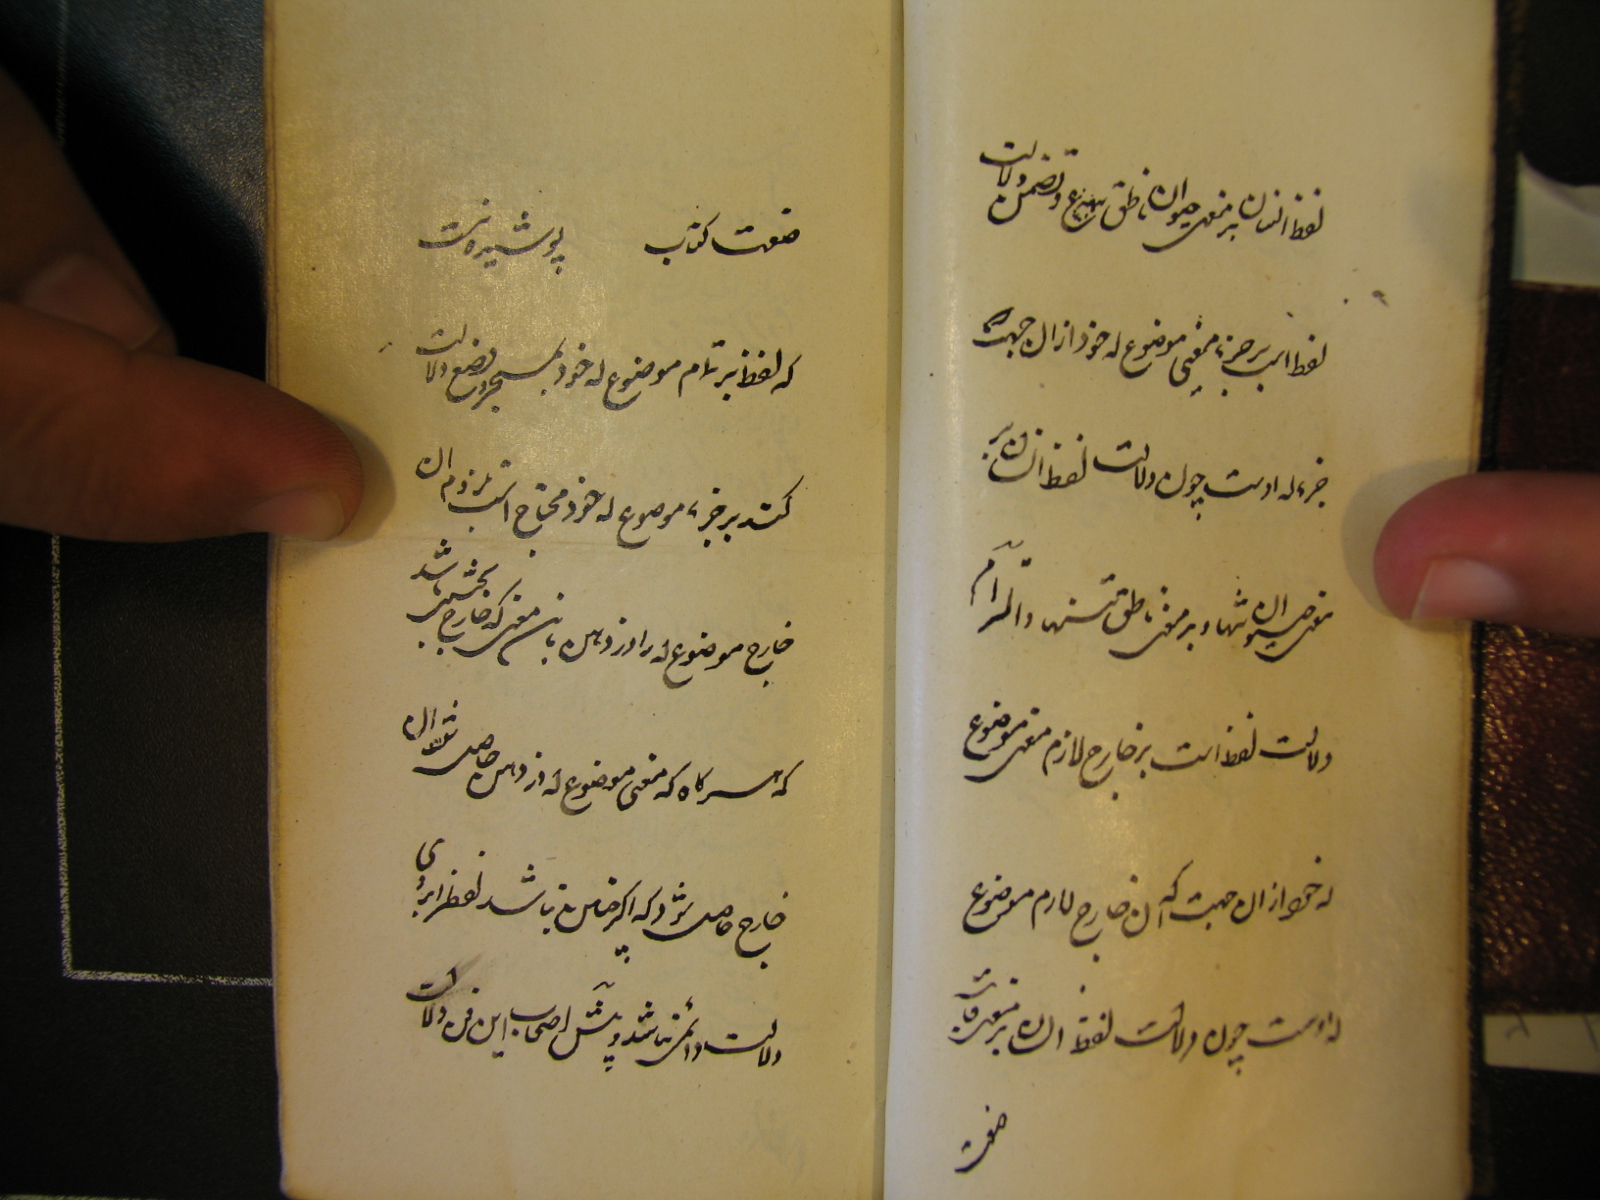 لفظ انسان بر معنی حیوان ناطق و تضمن دلالت
لفظ است بر جزء معنی موضوع له خود از ان جهت که
جزء له اوست چون دلالت لفظ انسان بر
معنی حیوان تنها و بر معنی ناطق تنها و التزام
دلالت لفظ است بر خارج لازم معنی موضوع
له خود از ان جهت که ان خارج لازم موضوع
له اوست چون دلالت لفظ انسان بر معنی قابلیت
صنعت
صنعت کتابت پوشیده نیست
که لفظ بر تمام موضوع له خود بمجرد وضع دلالت
کند بر جزء موضوع له خود محتاج است بلزوم ان
خارج موضوع له را در ذهن باین معنی که خارج باشد
که هر گاه که معنی موضوع له در ذهن حاصل شود ان
خارج حاصل شود که اگر چنین نباشد لفظ را بروی
دلالت دائمی نباشد و پیش اصحاب این فن دلالت